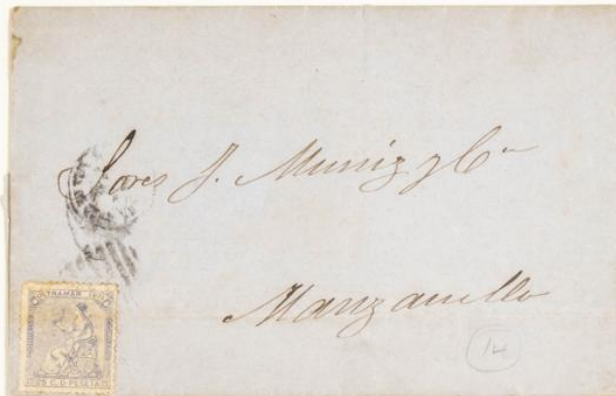 Sores J. Muniz y Cª
Manzanillo
ULTRAMAR 1874
25 C. D PESETA
14